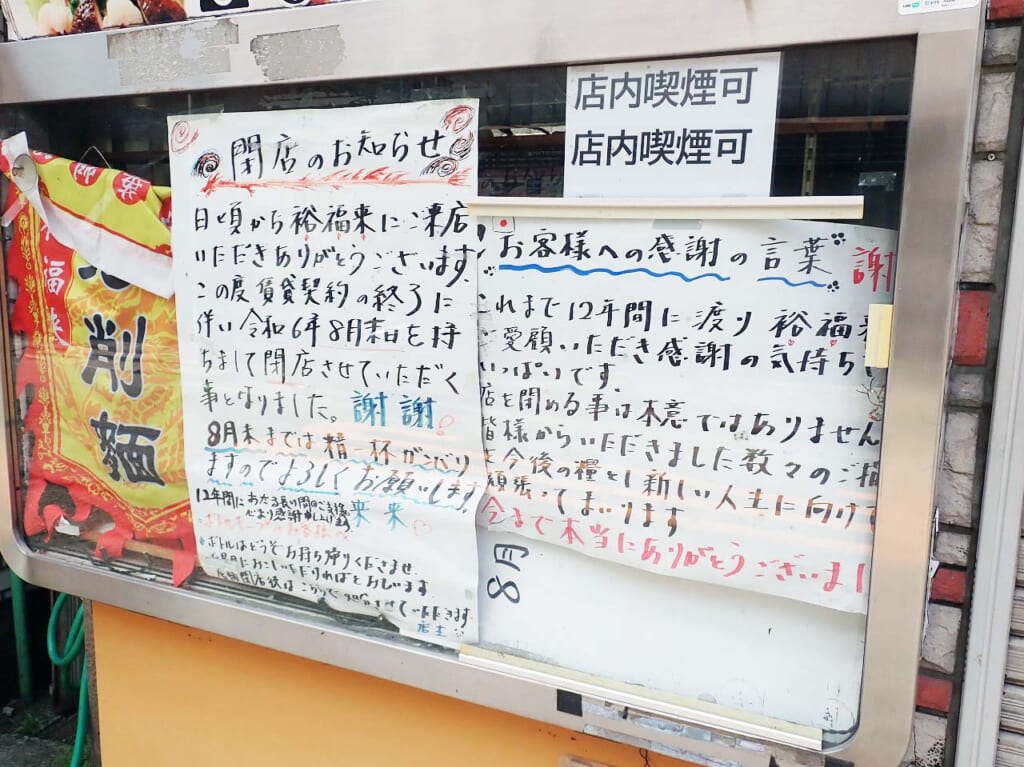 店内喫煙可
店内喫煙可
閉店のお知らせ
日頃から裕福来にご来店
いただきありがとうございます。
この度賃貸契約の終了に
伴い令和6年8月末日を持
ちまして閉店させていただく
事となりました。 謝謝!
8月末までは精一杯がんばり
ますのでよろしくお願いします。
12年間に
心より感謝申し上げます
来来
ボトルはどうぞお持ち帰りくださませ。
店主
お客様への感謝の言葉 謝
これまで12年間に渡り 裕福来
ご愛顧いただき感謝の気持ち
いっぱいです。
店を閉める事は本意ではありません
皆様からいただきました数々のご
を今後の糧とし新しい人生に向けて
頑張ってまいります
今まで本当にありがとうございまし
8月
福来
削麺